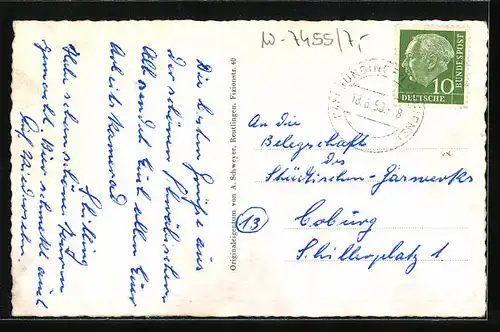 W-7455/7,-
Die besten Grüße aus
der schönen Schwäbischen
Alb sendet Euch allen Euer
Arbeitskamerad
Schilling
Habe schon schöne Touren
gemacht. Bier schmeckt auch
Auf Wiedersehn.
Originaleigentum von A. Schweyer, Reutlingen, Fizionstr. 40
JUNGINGEN
18.8.58.-18
10
DEUTSCHE
BUNDESPOST
An die
Belegschaft
des
Städtischen-Gaswerks
13
Coburg
Schillerplatz 1.